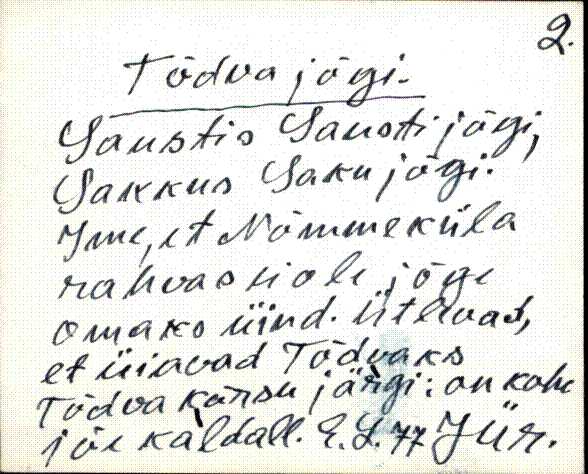 2.
Tõdva jõgi.
Saustis Sausti jõgi,
Sakkus Saku jõgi.
Ime, et Nõmmeküla
rahvas ei ole jõge
omaks üind. Ütlevad,
et üiavad Tõdvaks
Tõdva kõrsu järgi: on kohe
jõe kaldall. E.L. 77 Jür.